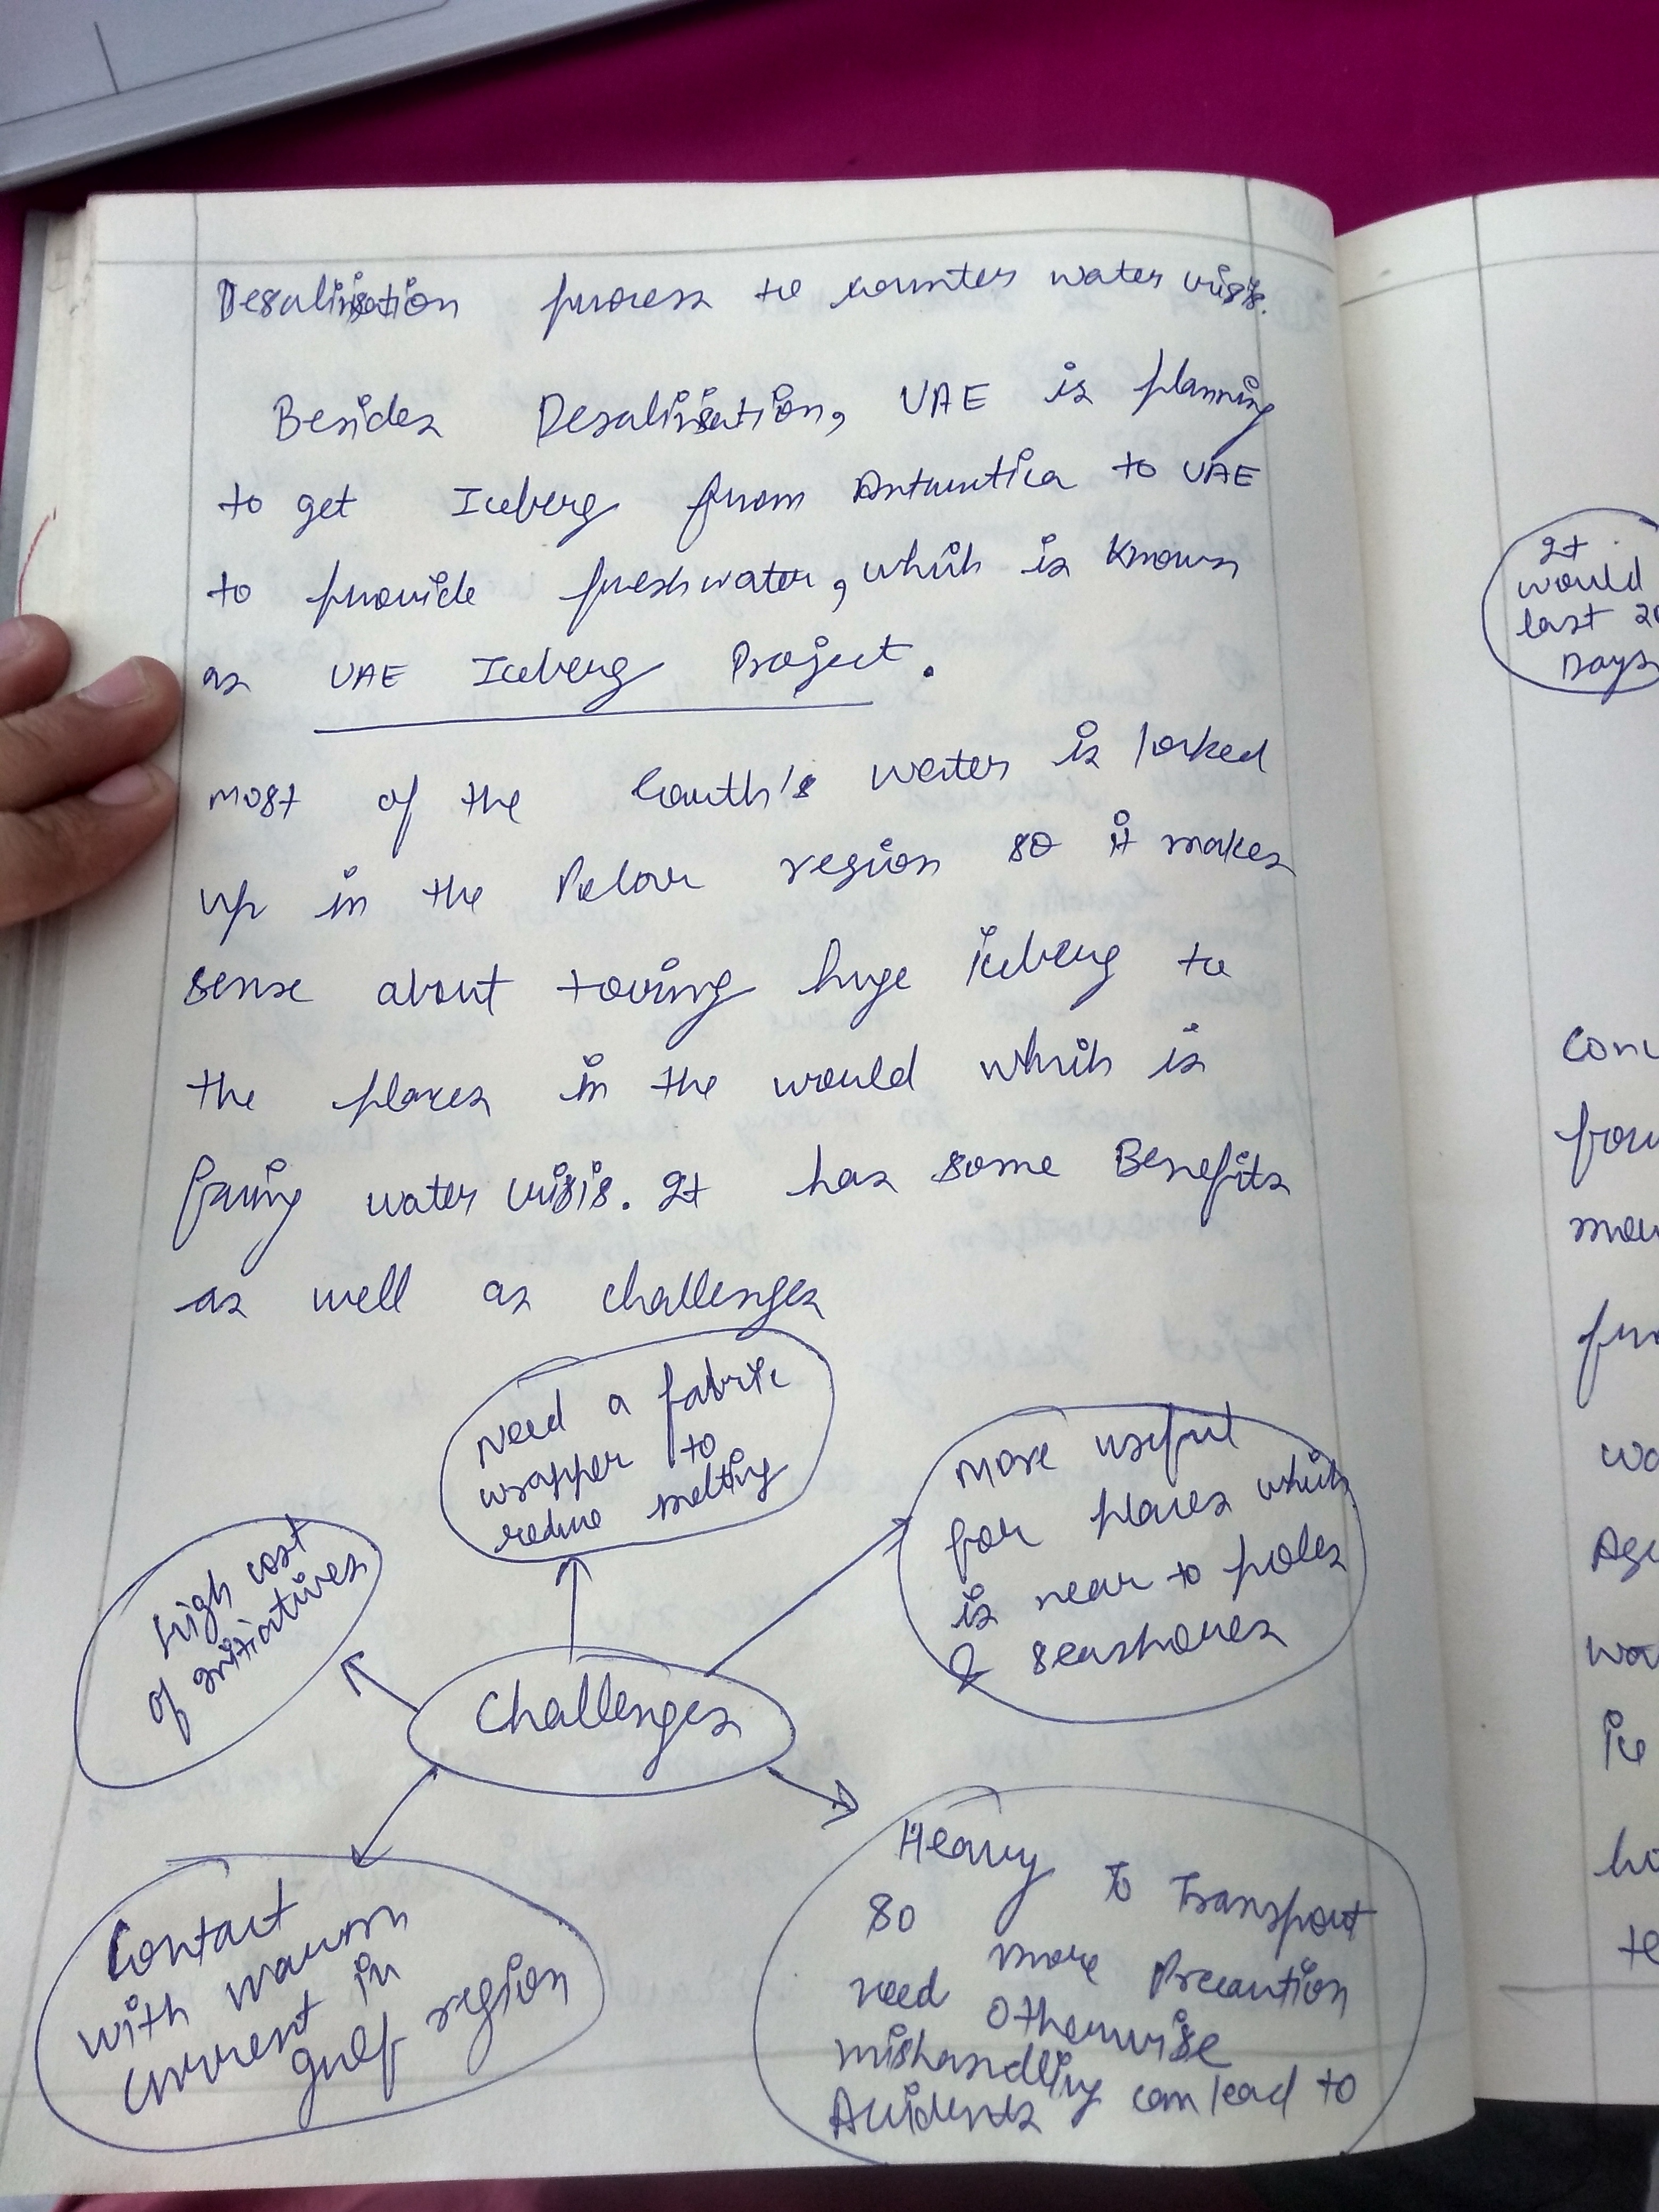 Desalinisation process to counter water crisis.
Besides Desalinisation, UAE is planning
to get Iceberg from Antarctica to UAE
to provide freshwater, which is known
as UAE Iceberg Project.
most of the Earth's water is locked
up in the Polar region so it makes
sense about towing huge iceberg to
the places in the world which is
facing water crisis. It has some Benefits
as well as challenges
Need a fabric
wrapper to
reduce melting
More useful
for places which
is near to poles
& seashores
high cost
of initiatives
Challenges
Contact
with warm
current in
gulf region
Heavy to Transport
so need more Precaution
Otherwise
mishandling can lead to
Accidents
It
would
last
Days
ice